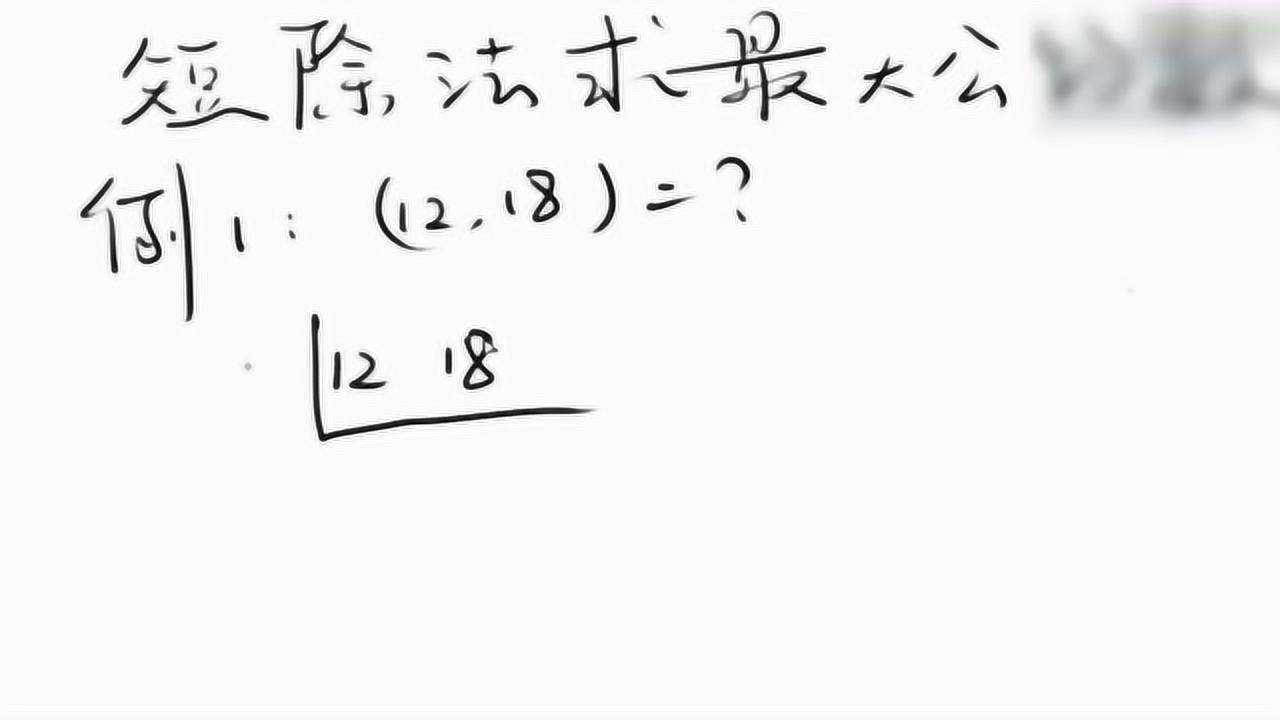 短除法求最大公
例1: (12,18)=?
12 18